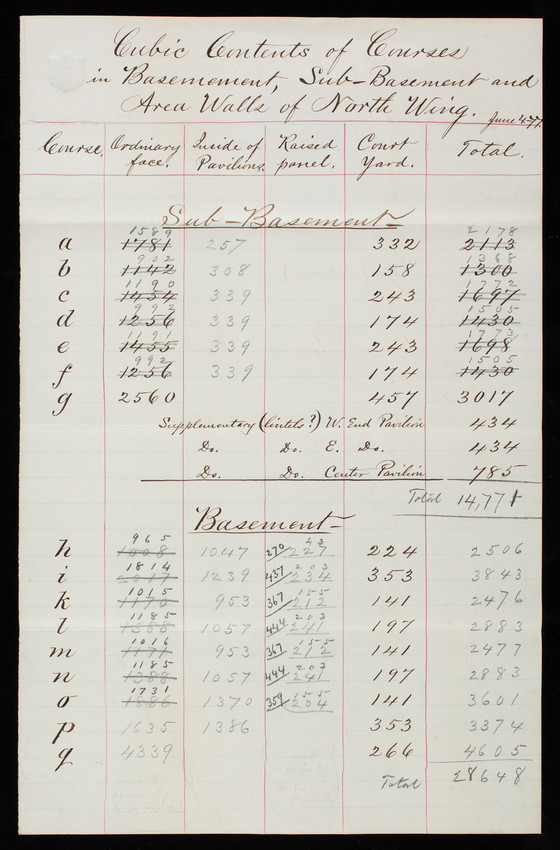 Cubic Contents of Courses
in Basemement, Sub-Basement and
Area Walls of North Wing. June 4-77.
Course. Ordinary face. Inside of Pavilions. Raised panel. Court Yard. Total.
Sub-Basement
1589 2178
a 1781 257 332 2113
902 1368
b 1142 308 158 1300
1190 1772
c 1454 339 243 1697
992 1505
d 1256 339 174 1430
1191 1773
e 1455 339 243 1698
992 1505
f 1256 339 174 1430
g 2560 457 3017
Supplementary (lintels?) W. End Pavilion 434
Do. Do. E. Do. 434
Do. Do. Center Pavilion 785
Total 14,771
Basement
965 43
h 1008 1047 270/227 224 2506
1814 203
i 2017 1239 437/234 353 3843
1015 155
k 1170 953 367/212 141 2476
1185 203
l 1388 1057 444/241 197 2883
1016 155
m 1171 953 367/212 141 2477
1185 203
n 1388 1057 444/241 197 2883
1731 155
o 1886 1370 359/204 141 3601
p 1635 1386 353 3374
q 4339 266 4605
Total 28648